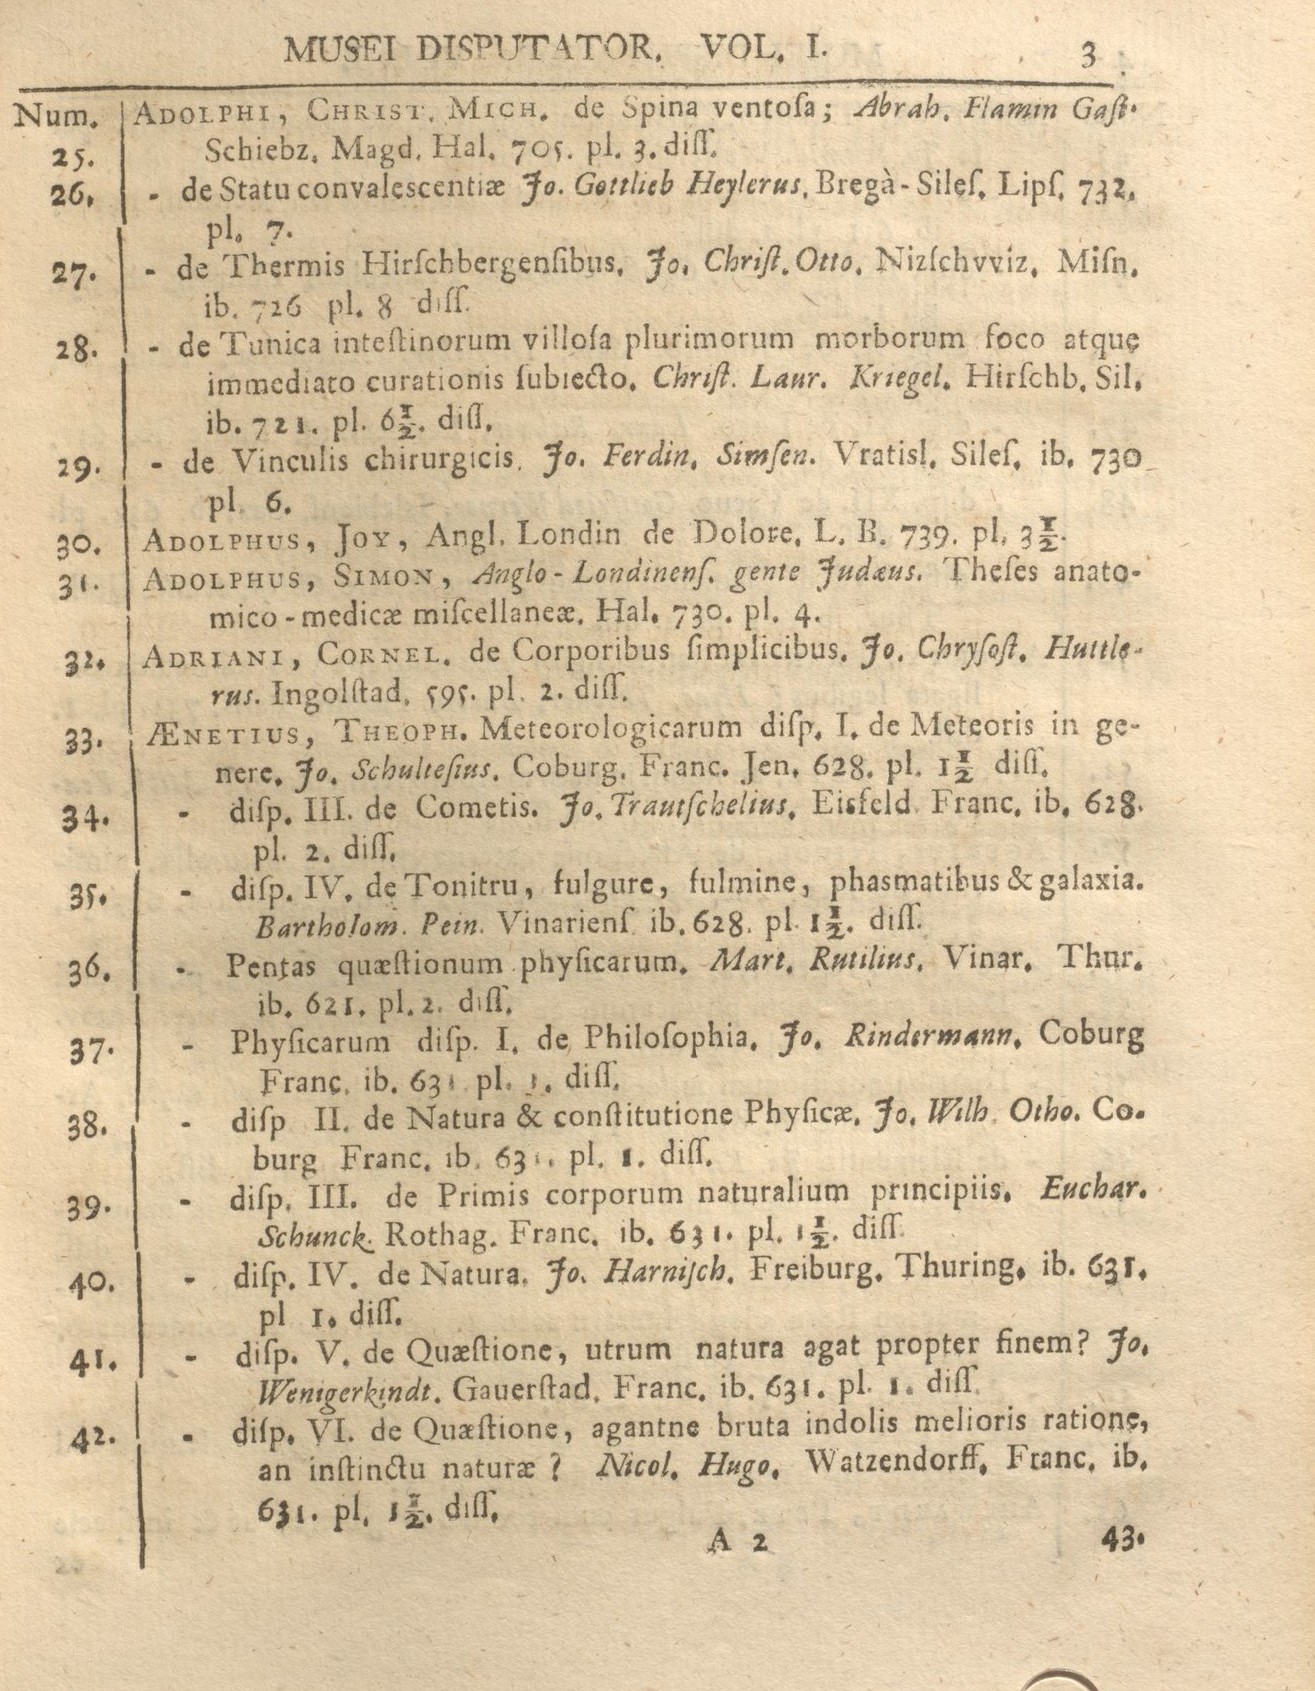 MUSEI DISPUTATOR. VOL. I. 3
Num. ADOLPHI, CHRIST. MICH. de Spina ventoſa; Abrah. Flamin Gaſt.
25. Schiebz. Magd. Hal. 705. pl. 3. diſſ.
26. - de Statu convalescentiæ Jo. Gottlieb Heylerus. Bregà-Sileſ. Lipſ. 732.
pl. 7.
27. - de Thermis Hirſchbergenſibus. Jo. Chriſt. Otto. Nizſchvviz. Miſn.
ib. 726 pl. 8 diſſ.
28. - de Tunica inteſtinorum villoſa plurimorum morborum foco atque
immediato curationis ſubiecto. Chriſt. Laur. Kriegel. Hirſchb. Sil.
ib. 721. pl. 6½. diſſ.
29. - de Vinculis chirurgicis. Jo. Ferdin. Simſen. Vratisl. Sileſ. ib. 730
pl. 6.
30. ADOLPHUS, JOY, Angl. Londin de Dolore. L. B. 739. pl. 3½.
31. ADOLPHUS, SIMON, Anglo-Londinenſ. gente Judæus. Theſes anato-
mico-medicæ miſcellaneæ. Hal. 730. pl. 4.
32. ADRIANI, CORNEL. de Corporibus ſimplicibus. Jo. Chryſoſt. Huttle-
rus. Ingolſtad. 595. pl. 2. diſſ.
33. ÆNETIUS, THEOPH. Meteorologicarum diſp. I. de Meteoris in ge-
nere. Jo. Schulteſius. Coburg. Franc. Jen. 628. pl. 1½ diſſ.
34. - diſp. III. de Cometis. Jo. Trautſchelius. Eisfeld Franc. ib. 628.
pl. 2. diſſ.
35. - diſp. IV. de Tonitru, fulgure, fulmine, phasmatibus & galaxia.
Bartholom. Pein. Vinarienſ ib. 628. pl. 1½. diſſ.
36. - Pentas quæſtionum phyſicarum. Mart. Rutilius. Vinar. Thur.
ib. 621. pl. 2. diſſ.
37. - Phyſicarum diſp. I. de Philoſophia. Jo. Rindermann. Coburg
Franc. ib. 631 pl. 1. diſſ.
38. - diſp II. de Natura & conſtitutione Phyſicæ. Jo. Wilh. Otho. Co-
burg Franc. ib. 631. pl. 1. diſſ.
39. - diſp. III. de Primis corporum naturalium principiis. Euchar.
Schunck. Rothag. Franc. ib. 631. pl. 1½. diſſ.
40. - diſp. IV. de Natura. Jo. Harniſch. Freiburg. Thuring. ib. 631.
pl 1. diſſ.
41. - diſp. V. de Quæſtione, utrum natura agat propter finem? Jo.
Wenigerkindt. Gauerſtad. Franc. ib. 631. pl. 1. diſſ.
42. - diſp. VI. de Quæſtione, agantne bruta indolis melioris ratione,
an inſtinctu naturæ? Nicol. Hugo. Watzendorff. Franc. ib.
631. pl. 1½. diſſ.
A 2 43.